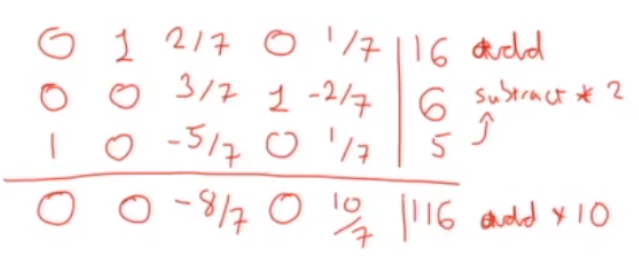 0 1 2/7 0 1/7 | 16 add
0 0 3/7 1 -2/7 | 6 subtract * 2
1 0 -5/7 0 1/7 | 5
0 0 -8/7 0 10/7 | 116 add * 10